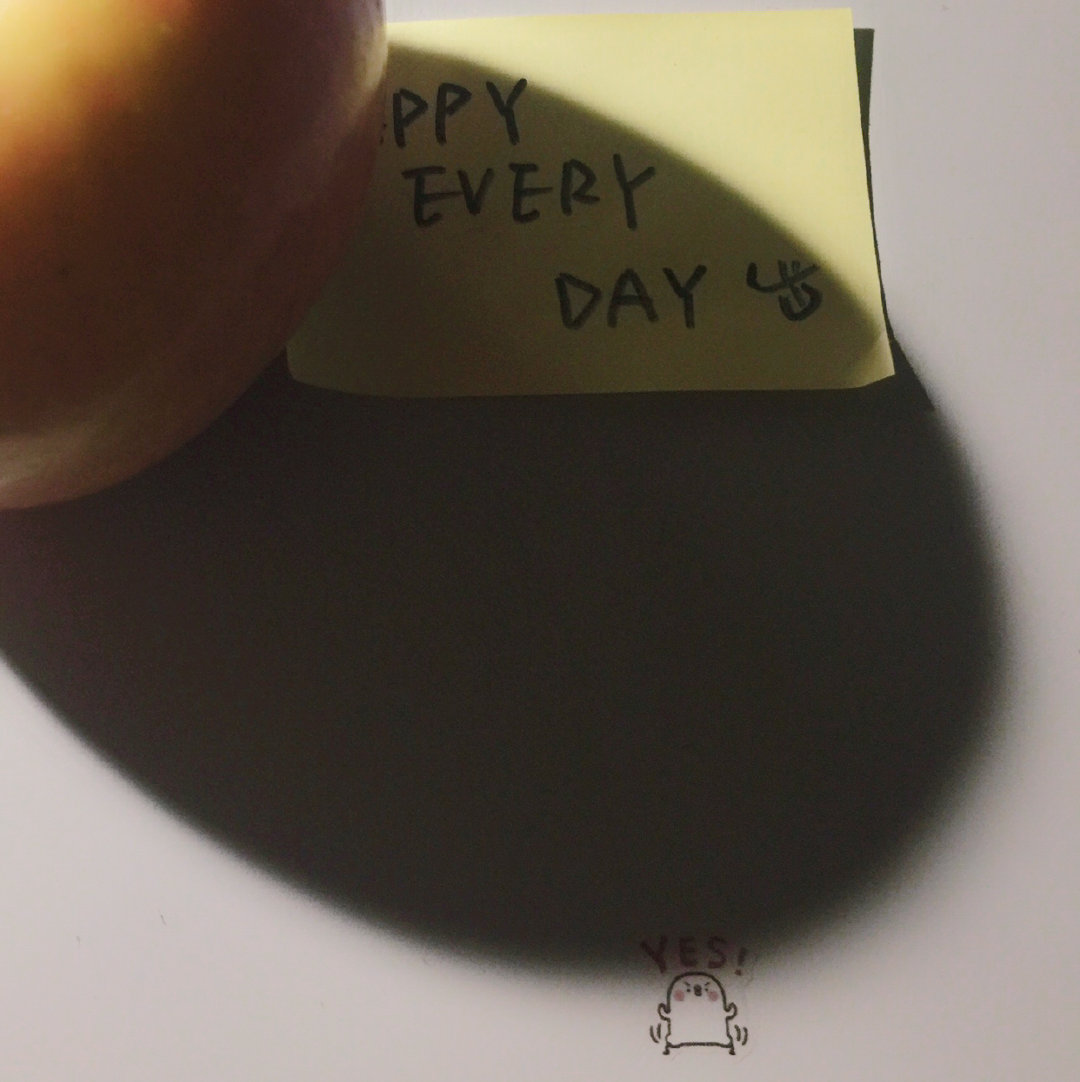 PPY
EVERY
DAY
YES!